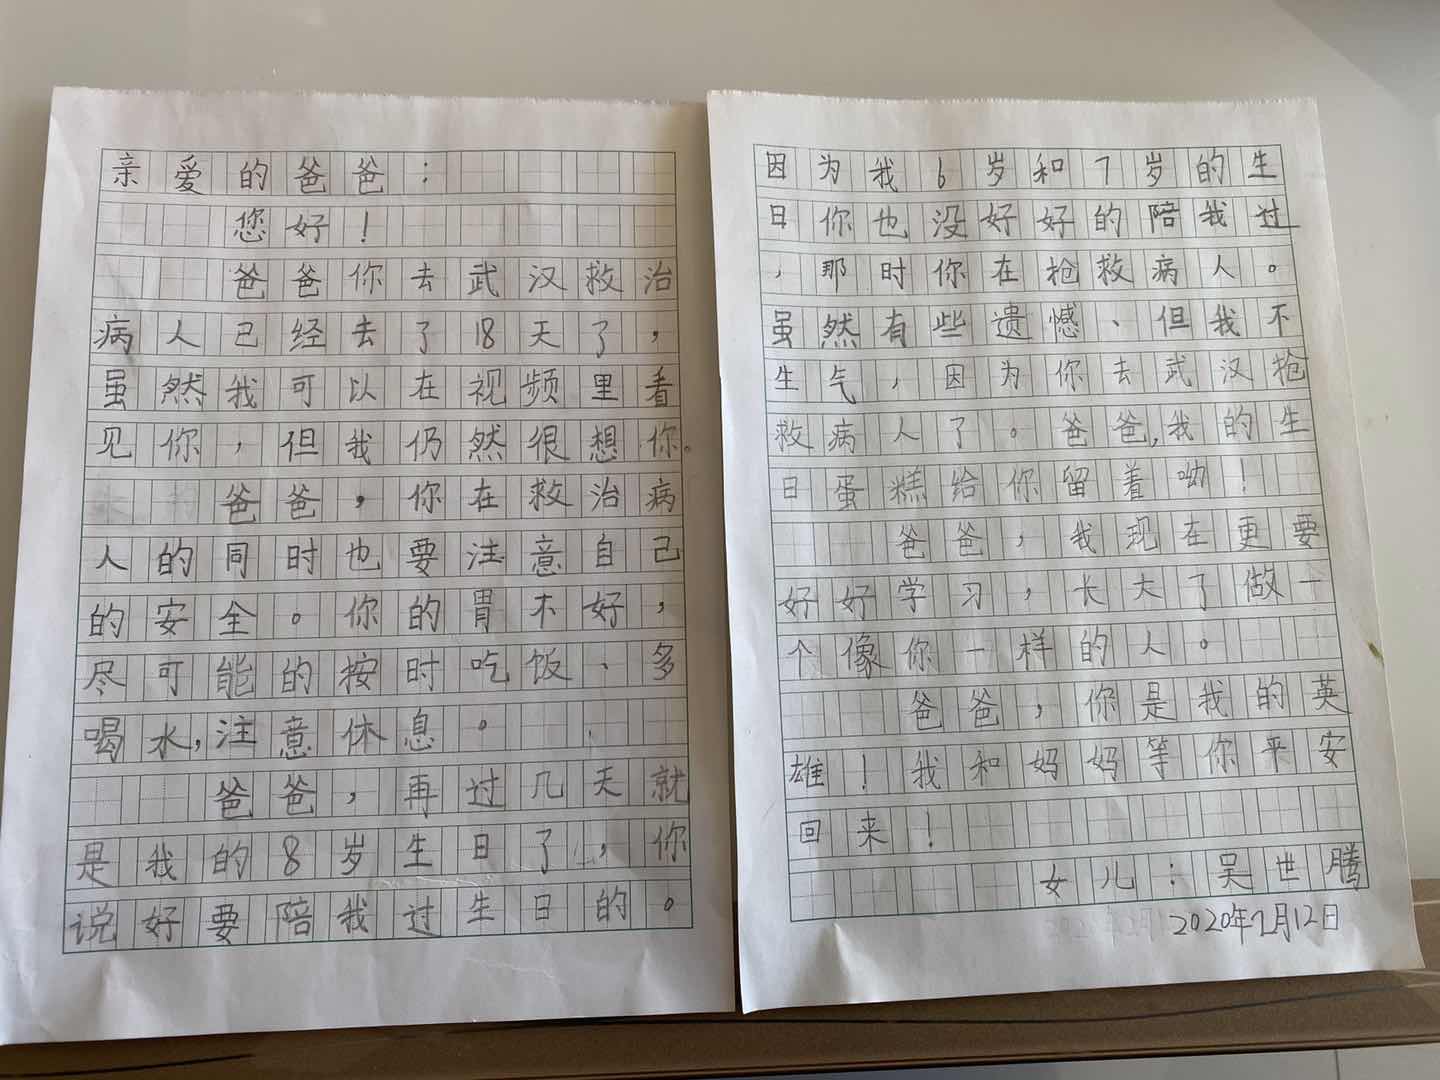 亲爱的爸爸：
您好！
爸爸你去武汉救治
病人已经去了18天了，
虽然我可以在视频里看
见你，但我仍然很想你。
爸爸，你在救治病
人的同时也要注意自己
的安全。你的胃不好，
尽可能的按时吃饭、多
喝水，注意休息。
爸爸，再过几天就
是我的8岁生日了，你
说好要陪我过生日的。
因为我6岁和7岁的生
日你也没好好的陪我过
，那时你在枪救病人。
虽然有些遗憾、但我不
生气，因为你去武汉枪
救病人了。爸爸，我的生
日蛋糕给你留着呦！
爸爸，我现在更要
好好学习，长大了做一
个像你一样的人。
爸爸，你是我的英
雄！我和妈妈等你平安
回来！
女儿：吴世腾
2020年2月12日